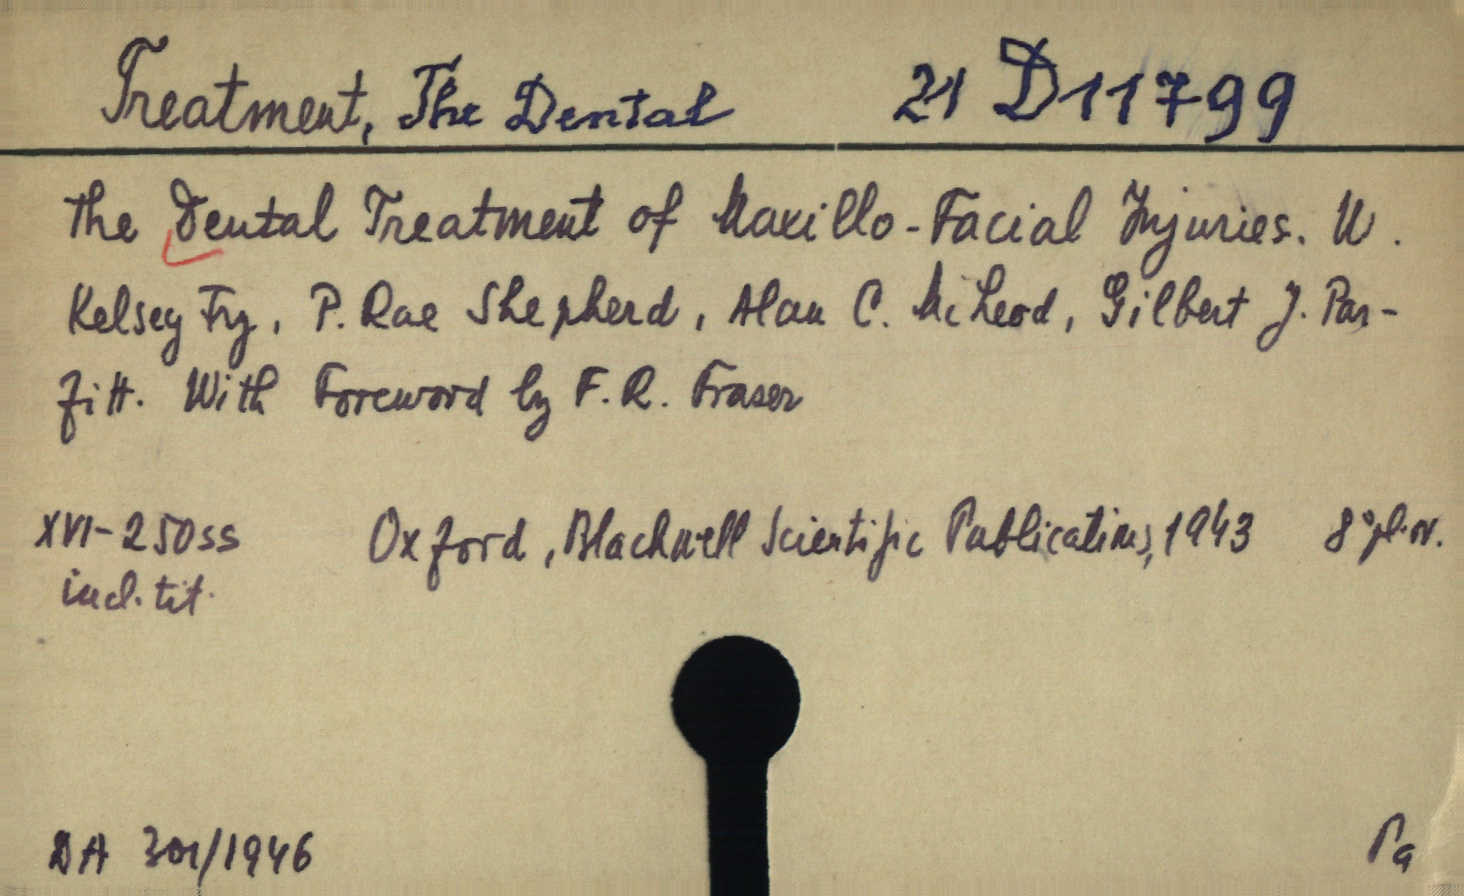 Treatment, The Dental 21 D 11799
The Dental Treatment of Maxillo-Facial Injuries. W.
Kelsey Fry, P. Rae Shepherd, Alan C. McLeod, Gilbert J. Par-
fitt. With Foreword by F. R. Fraser
XVI-250ss Oxford, Blackwell Scientific Publications, 1943 8°
incl. tit.
DA 301/1946 Pa